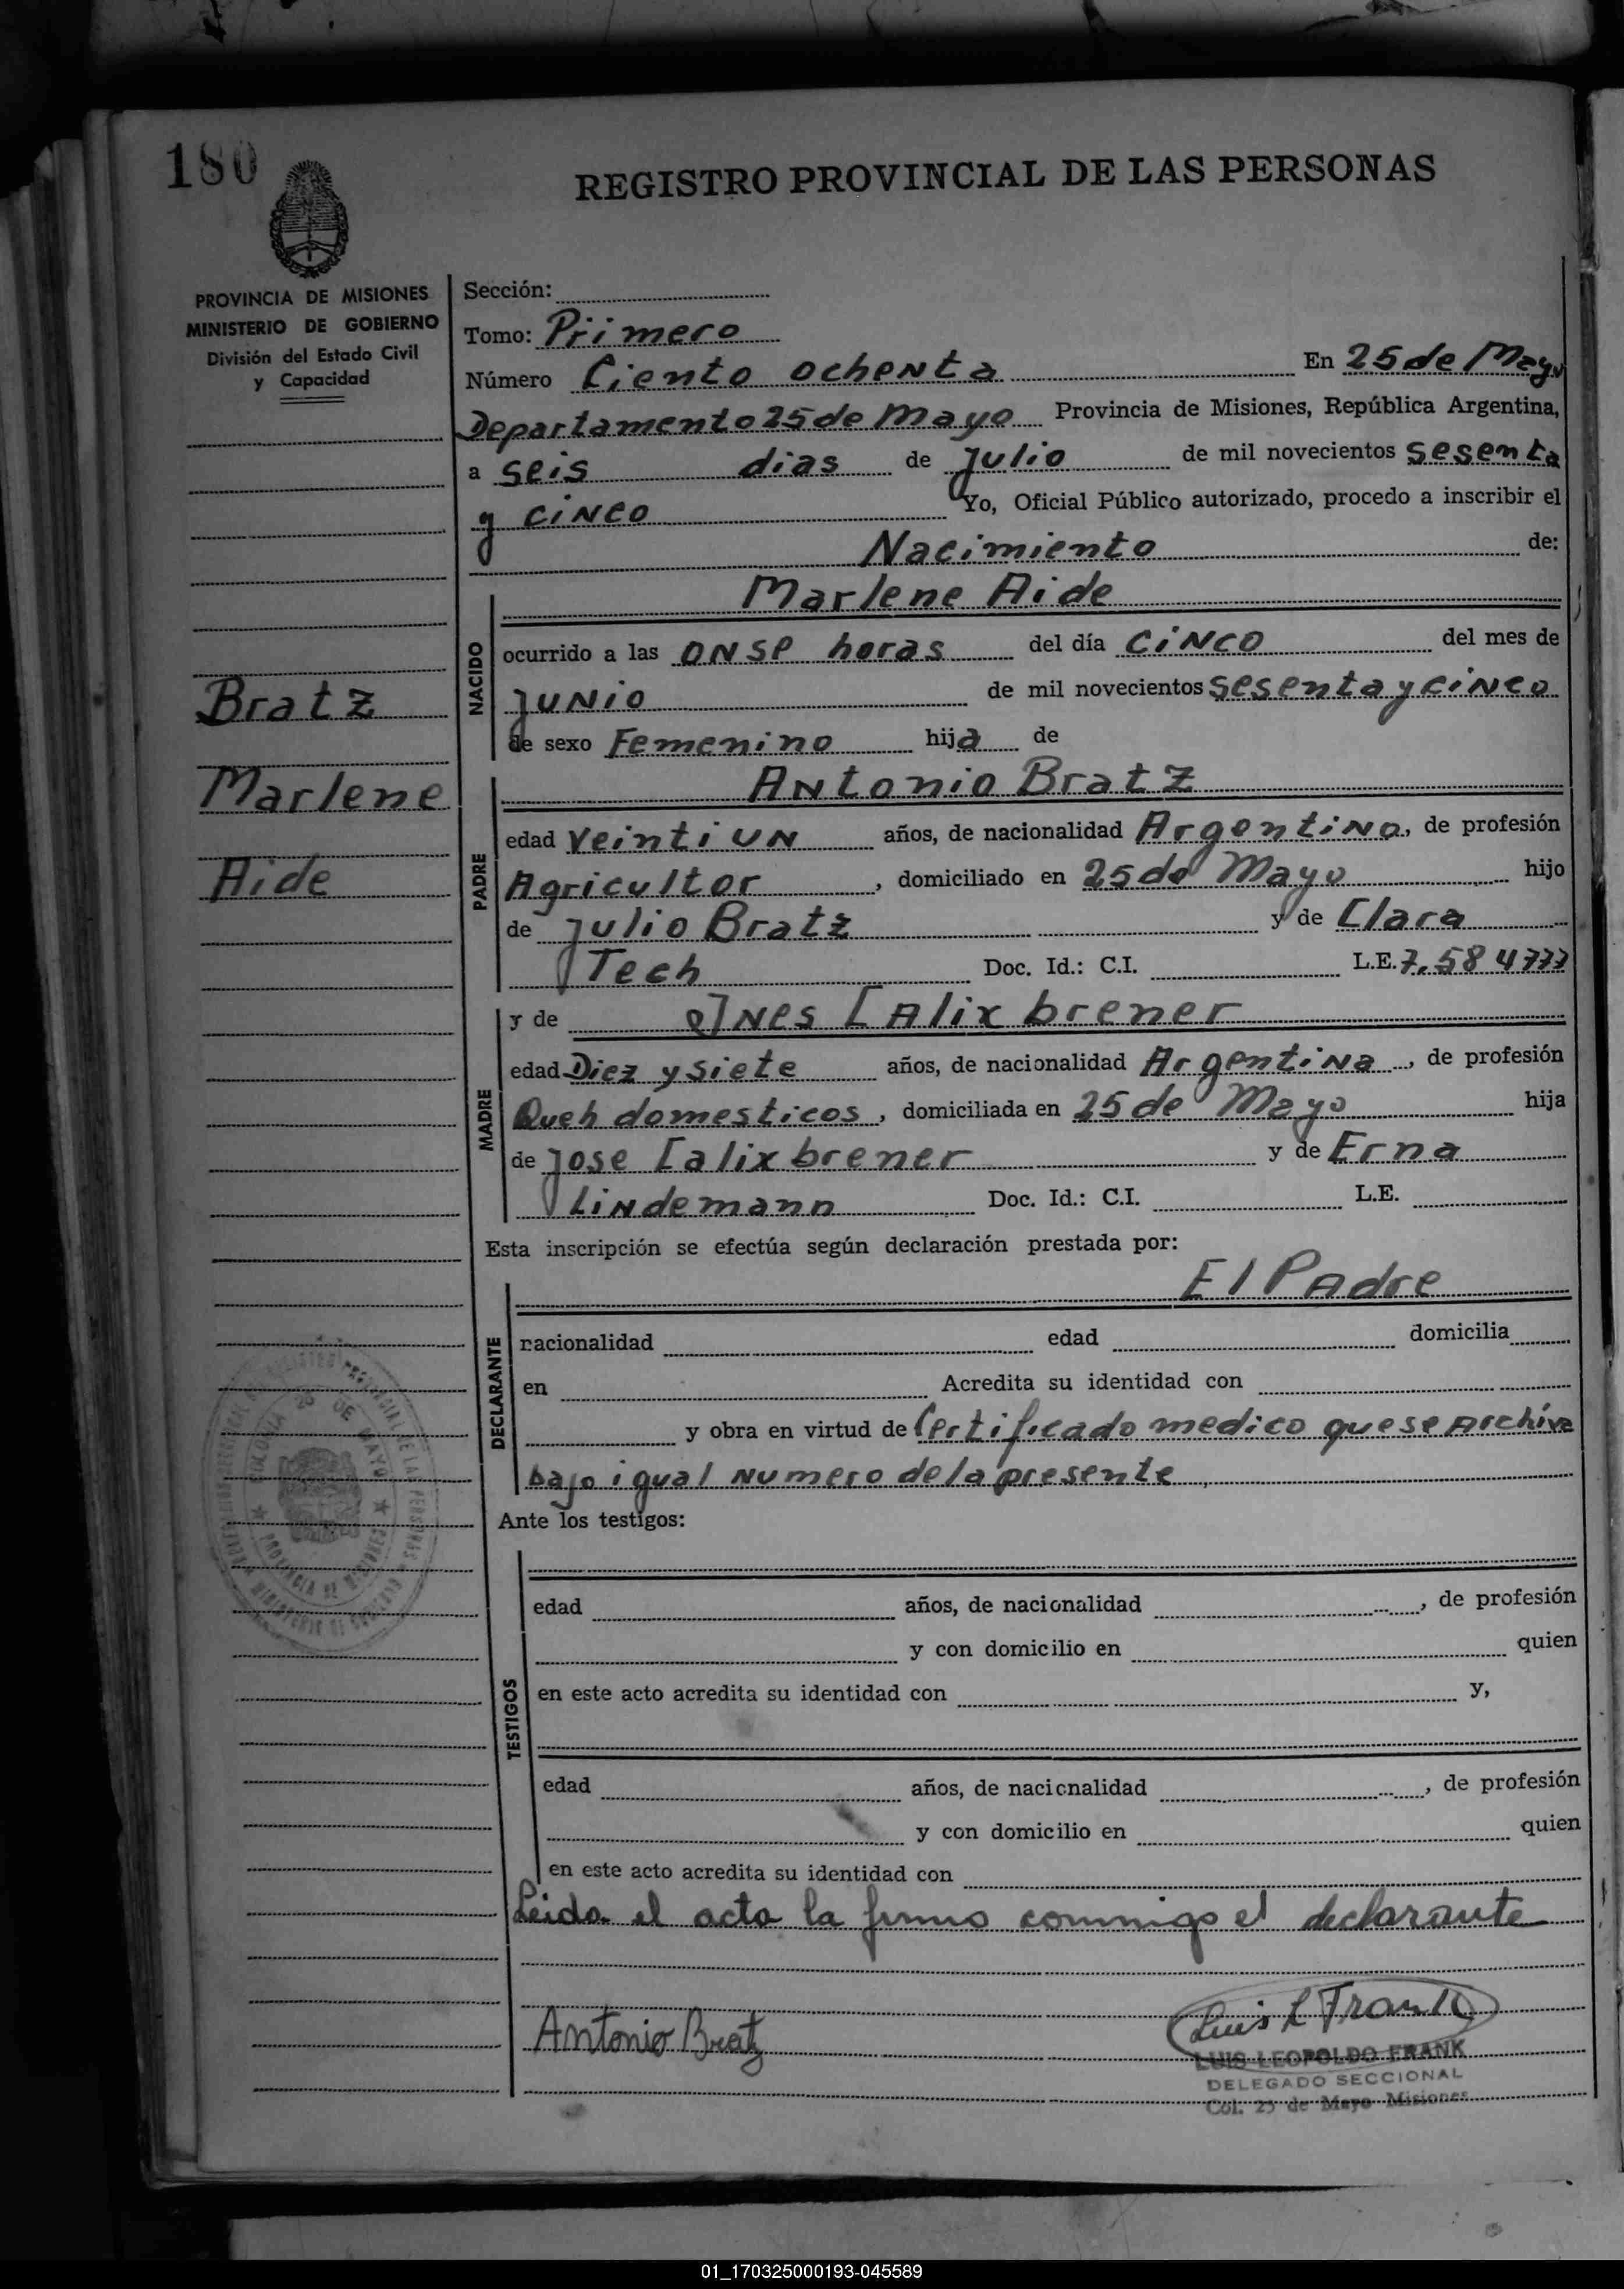 180
REGISTRO PROVINCIAL DE LAS PERSONAS
PROVINCIA DE MISIONES
MINISTERIO DE GOBIERNO
División del Estado Civil
y Capacidad
Bratz
Marlene
Aide
Sección:
Tomo: Primero
Número Ciento ochenta En 25 de Mayo
Departamento 25 de Mayo Provincia de Misiones, República Argentina,
a seis dias de Julio de mil novecientos sesenta
y cinco Yo, Oficial Público autorizado, procedo a inscribir el
Nacimiento de:
Marlene Aide
NACIDO
ocurrido a las onse horas del día cinco del mes de
Junio de mil novecientos sesenta y cinco
de sexo Femenino hija de
Antonio Bratz
PADRE
edad veinti un años, de nacionalidad Argentina, de profesión
Agricultor, domiciliado en 25 de Mayo hijo
de Julio Bratz y de Clara
Tech Doc. Id.: C.I. L.E. 7.584777
y de Ines Calixbrener
MADRE
edad Diez y siete años, de nacionalidad Argentina, de profesión
Queh domesticos, domiciliada en 25 de Mayo hija
de Jose Calixbrener y de Erna
Lindemann Doc. Id.: C.I. L.E.
Esta inscripción se efectúa según declaración prestada por:
El Padre
DECLARANTE
nacionalidad edad domicilia
en Acredita su identidad con
y obra en virtud de Certificado medico que se Archiva
bajo igual numero de la presente
Ante los testigos:
TESTIGOS
edad años, de nacionalidad , de profesión
y con domicilio en quien
en este acto acredita su identidad con y,
edad años, de nacionalidad , de profesión
y con domicilio en quien
en este acto acredita su identidad con
Leida el acta la firma conmigo el declarante
Antonio Bratz
Luis L Frank
LUIS LEOPOLDO FRANK
DELEGADO SECCIONAL
Col. 25 de Mayo Misiones
COLONIA 25 DE MAYO
PROVINCIA DE MISIONES
01_170325000193-045589